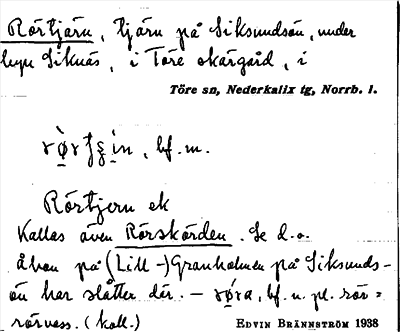 Rörtjärn, tjärn på Siksundsön, under
byn Siknäs, i Töre skärgård, i
Töre sn, Nederkalix tg, Norrb. l.
bf. m.
Rörtjern ek
Kallas även Rörskärden. Se d.o.
åbon på (Lill-)Granholmen på Siksunds-
ön har slåtter där. — bf. n. pl. rör =
rörvass. (koll.)
EDVIN BRÄNNSTRÖM 1938